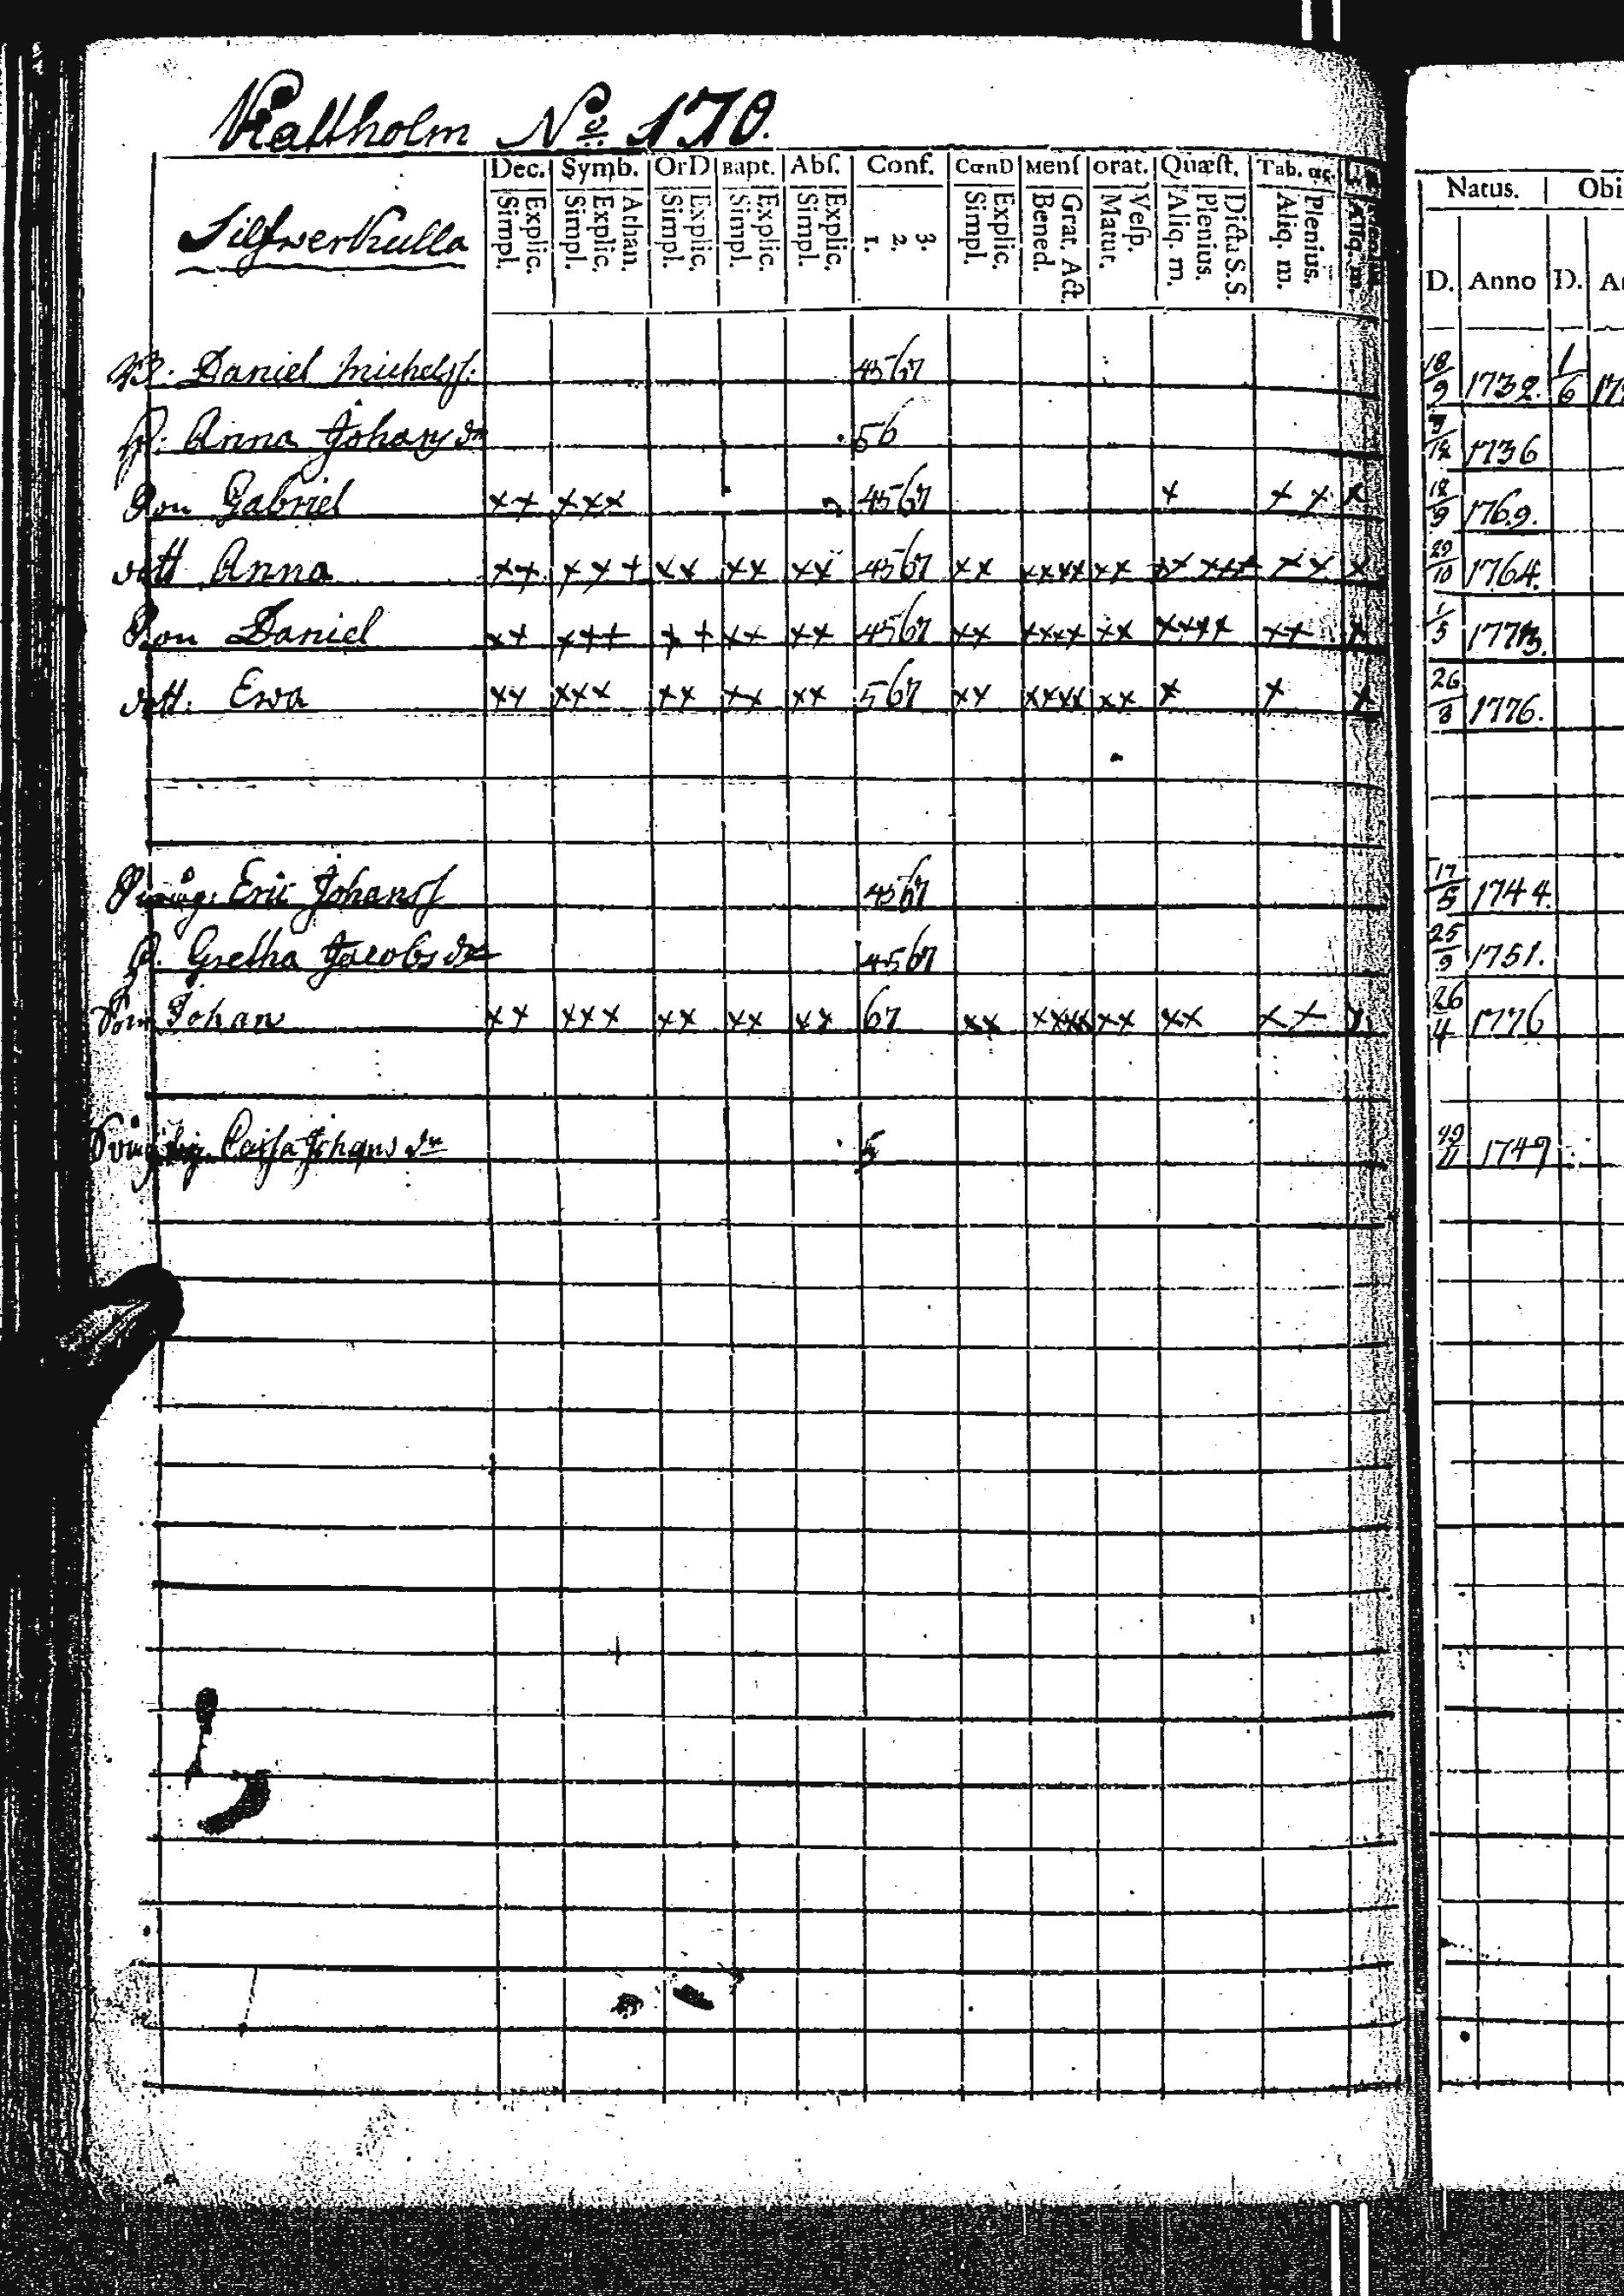 Kaltholm No 170.
Silfwerkulla
Dec. Symb. OrD Bapt. Abſ. Conf. CœnD Menſ orat. Quæſt. Tab. œc.
Explic. Simpl. Athan. Explic. Simpl. Explic. Simpl. Explic. Simpl. Explic. Simpl. 3. 2. 1. Explic. Simpl. Grat. Act. Bened. Veſp. Matut. Dicta S.S. Plenius. Aliq. m. Plenius. Aliq. m. Aliq. m.
Natus. Obi
D. Anno D. A
B. Daniel Michelss. 4567 18/9 1732. 1/6 17
h. Anna Johansdr 56 1736
Son Gabriel xx xxx 4567 x x x x 18/9 1769.
dott Anna xx xxx xx xx xx 4567 xx xxxx xx xx xxx xx x 29/10 1764.
Son Daniel xx xxx xx xx xx 4567 xx xxxx xx xxxx xx x 1/5 1773.
dott. Ewa xx xxx xx xx xx 567 xx xxxx xx x x x 26/3 1776.
Eric Johanss 4567 17/5 1744.
h. Gretha Jacobsdr 4567 25/9 1751.
Son Johan xx xxx xx xx xx 67 xx xxxx xx xx xx x 26/4 1776
Caisa Johansdr 5 1749